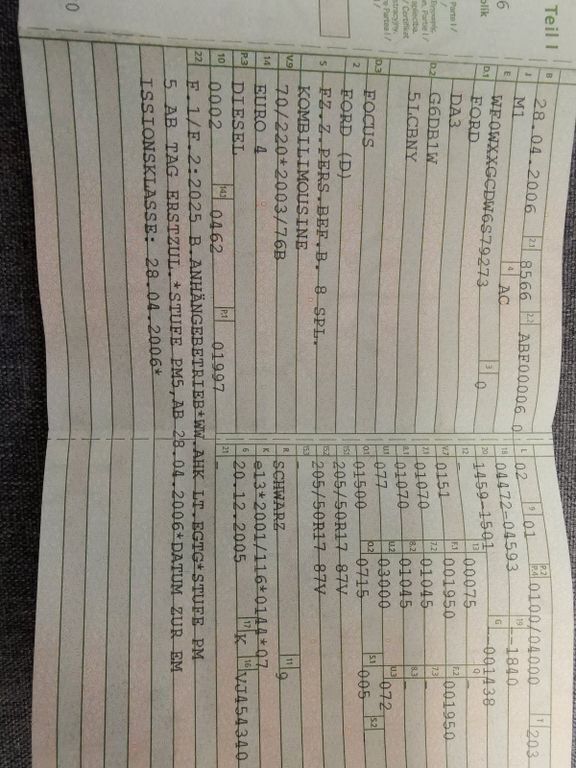 Teil I
B 28.04.2006 2.1 8566 2.2 ABF00006 0 L 02 9 01 P.2 P.4 0100/04000 T 203
J M1 4 AC 18 04472-04593 19 --1840
E WF0WXXGCDW6S79273 3 0 20 1459-1501 G --001438
D.1 FORD 12 - 13 00075 Q -
DA3 V.7 0151 F.1 001950 F.2 001950
D.2 G6DB1W 7.1 01070 7.2 01045 7.3 -
5LCBNY 8.1 01070 8.2 01045 8.3 -
U.1 077 U.2 03000 U.3 072
D.3 FOCUS O.1 01500 O.2 0715 S.1 005 S.2
2 FORD (D) 15.1 205/50R17 87V
5 FZ.Z.PERS.BEF.B. 8 SPL. 15.2 205/50R17 87V
KOMBILIMOUSINE 15.3 -
V.9 70/220*2003/76B R SCHWARZ 11 9
14 EURO 4 K e13*2001/116*0144*07
P.3 DIESEL 6 20.12.2005 17 K 16 VJ454340
10 0002 14.1 0462 P.1 01997 21 -
22 F.1/F.2:2025 B.ANHÄNGEBETRIEB*WW.AHK LT.EGTG*STUFE PM
5 AB TAG ERSTZUL.*STUFE PM5,AB 28.04.2006*DATUM ZUR EM
ISSIONSKLASSE: 28.04.2006*